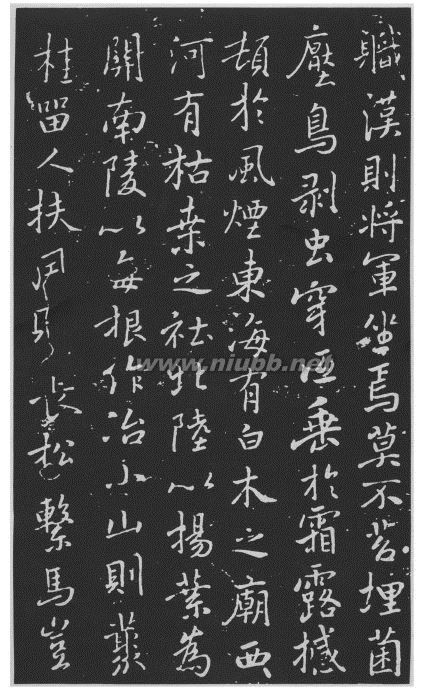 職漢則将軍坐焉莫不苔埋菌
壓鳥剥虫穿低垂於霜露撼
頓於風煙東海有白木之廟西
河有枯桒之社北陸以楊葉為
關南陵以每根作冶小山則叢
桂留人扶風則長松繫馬豈
www.niubb.net